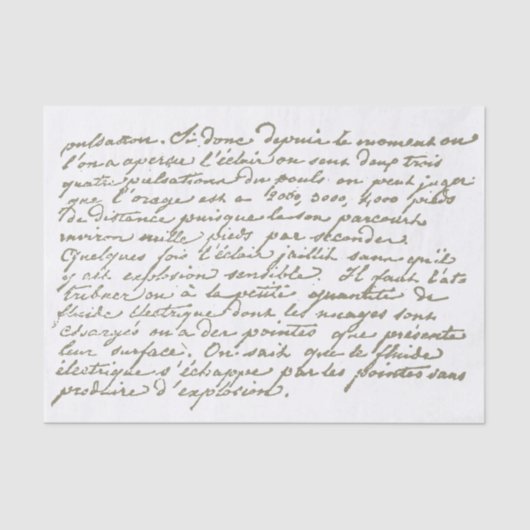 pulsation. Si donc depuis le moment ou
l'on a aperçue l'éclair on sent deux trois
quatre pulsations du pouls on peut juger
que l'orage est a 2000, 3000, 4,000 pieds
de distance puisque le son parcourt
environ mille pieds par secondes
Quelques fois l'éclair jaillit sans qu'il
y ait explosion sensible. Il faut l'at
tribuer ou à la petite quantité de
fluide électrique dont les nuages sont
chargés ou a des pointes que présente
leur surface. On sait que le fluide
électrique s'échappe par les pointes sans
produire d'explosion.